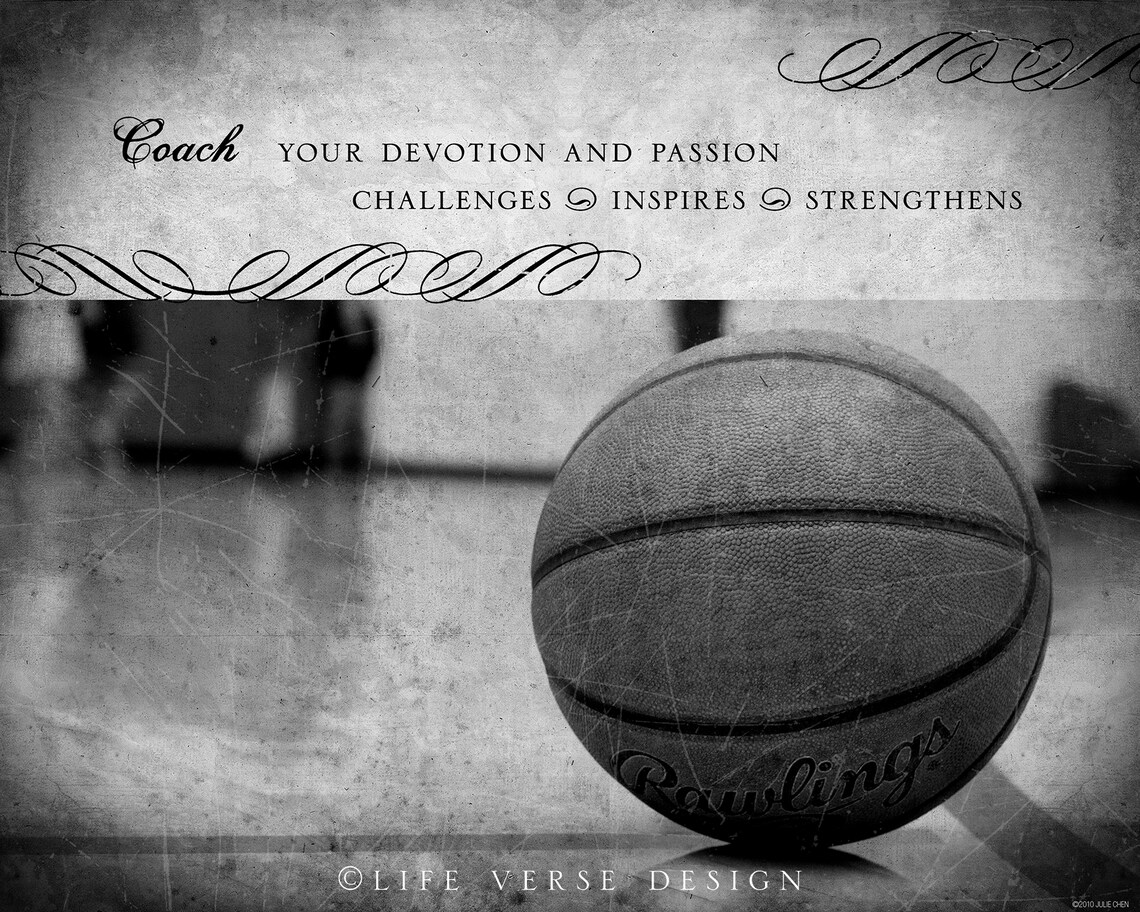 Coach YOUR DEVOTION AND PASSION
CHALLENGES INSPIRES STRENGTHENS
Rawlings
©LIFE VERSE DESIGN
©2010 JULIE CHEN